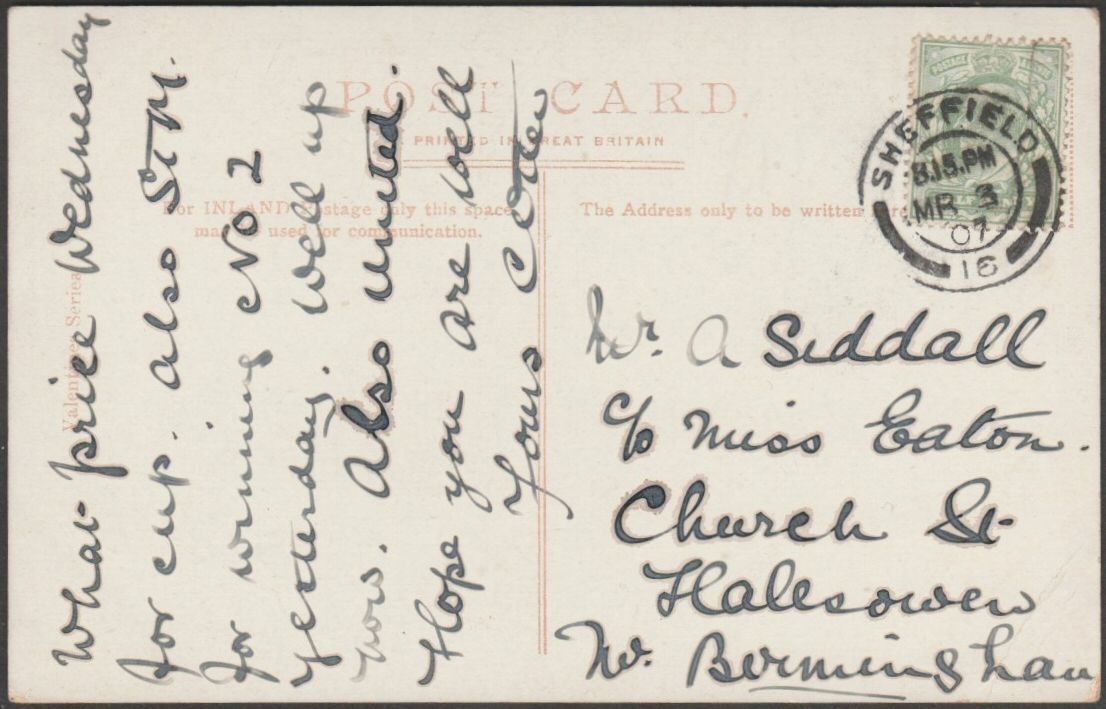 POST CARD.
PRINTED IN GREAT BRITAIN
For INLAND Postage only this space
may be used for communication.
The Address only to be written here
Valentines Series
SHEFFIELD
8.15.PM
MR 3
07
16
What price Wednesday
for cup. also St M.
for winning No 2
yesterday. Well up
now. Also united.
Hope you are well
Yours
Mr. A Siddall
c/o Miss Eaton.
Church St
Halesowen
Nr. Birmingham